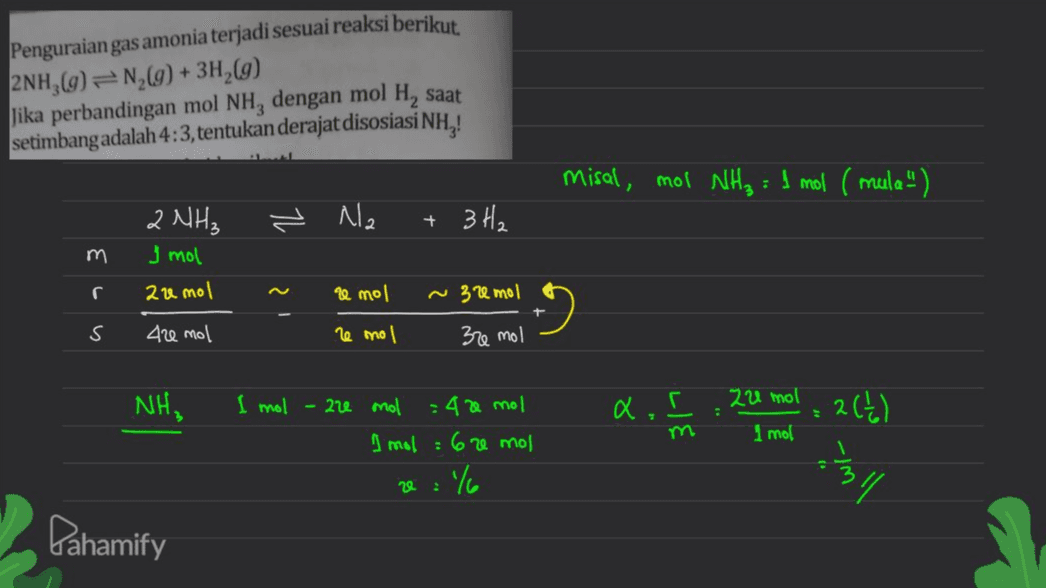 Penguraian gas amonia terjadi sesuai reaksi berikut.
2NH₃(g) ⇌ N₂(g) + 3H₂(g)
Jika perbandingan mol NH₃ dengan mol H₂ saat
setimbang adalah 4:3, tentukan derajat disosiasi NH₃!
misal, mol NH₃ = 1 mol (mula")
2 NH₃ ⇌ N₂ + 3 H₂
m 1 mol
r 2x mol ~ x mol ~ 3x mol
- +
s 4x mol x mol 3x mol
NH₃ 1 mol - 2x mol = 4x mol
1 mol = 6x mol
x = 1/6
α = r/m = 2x mol / 1 mol = 2(1/6)
= 1/3 //
Pahamify